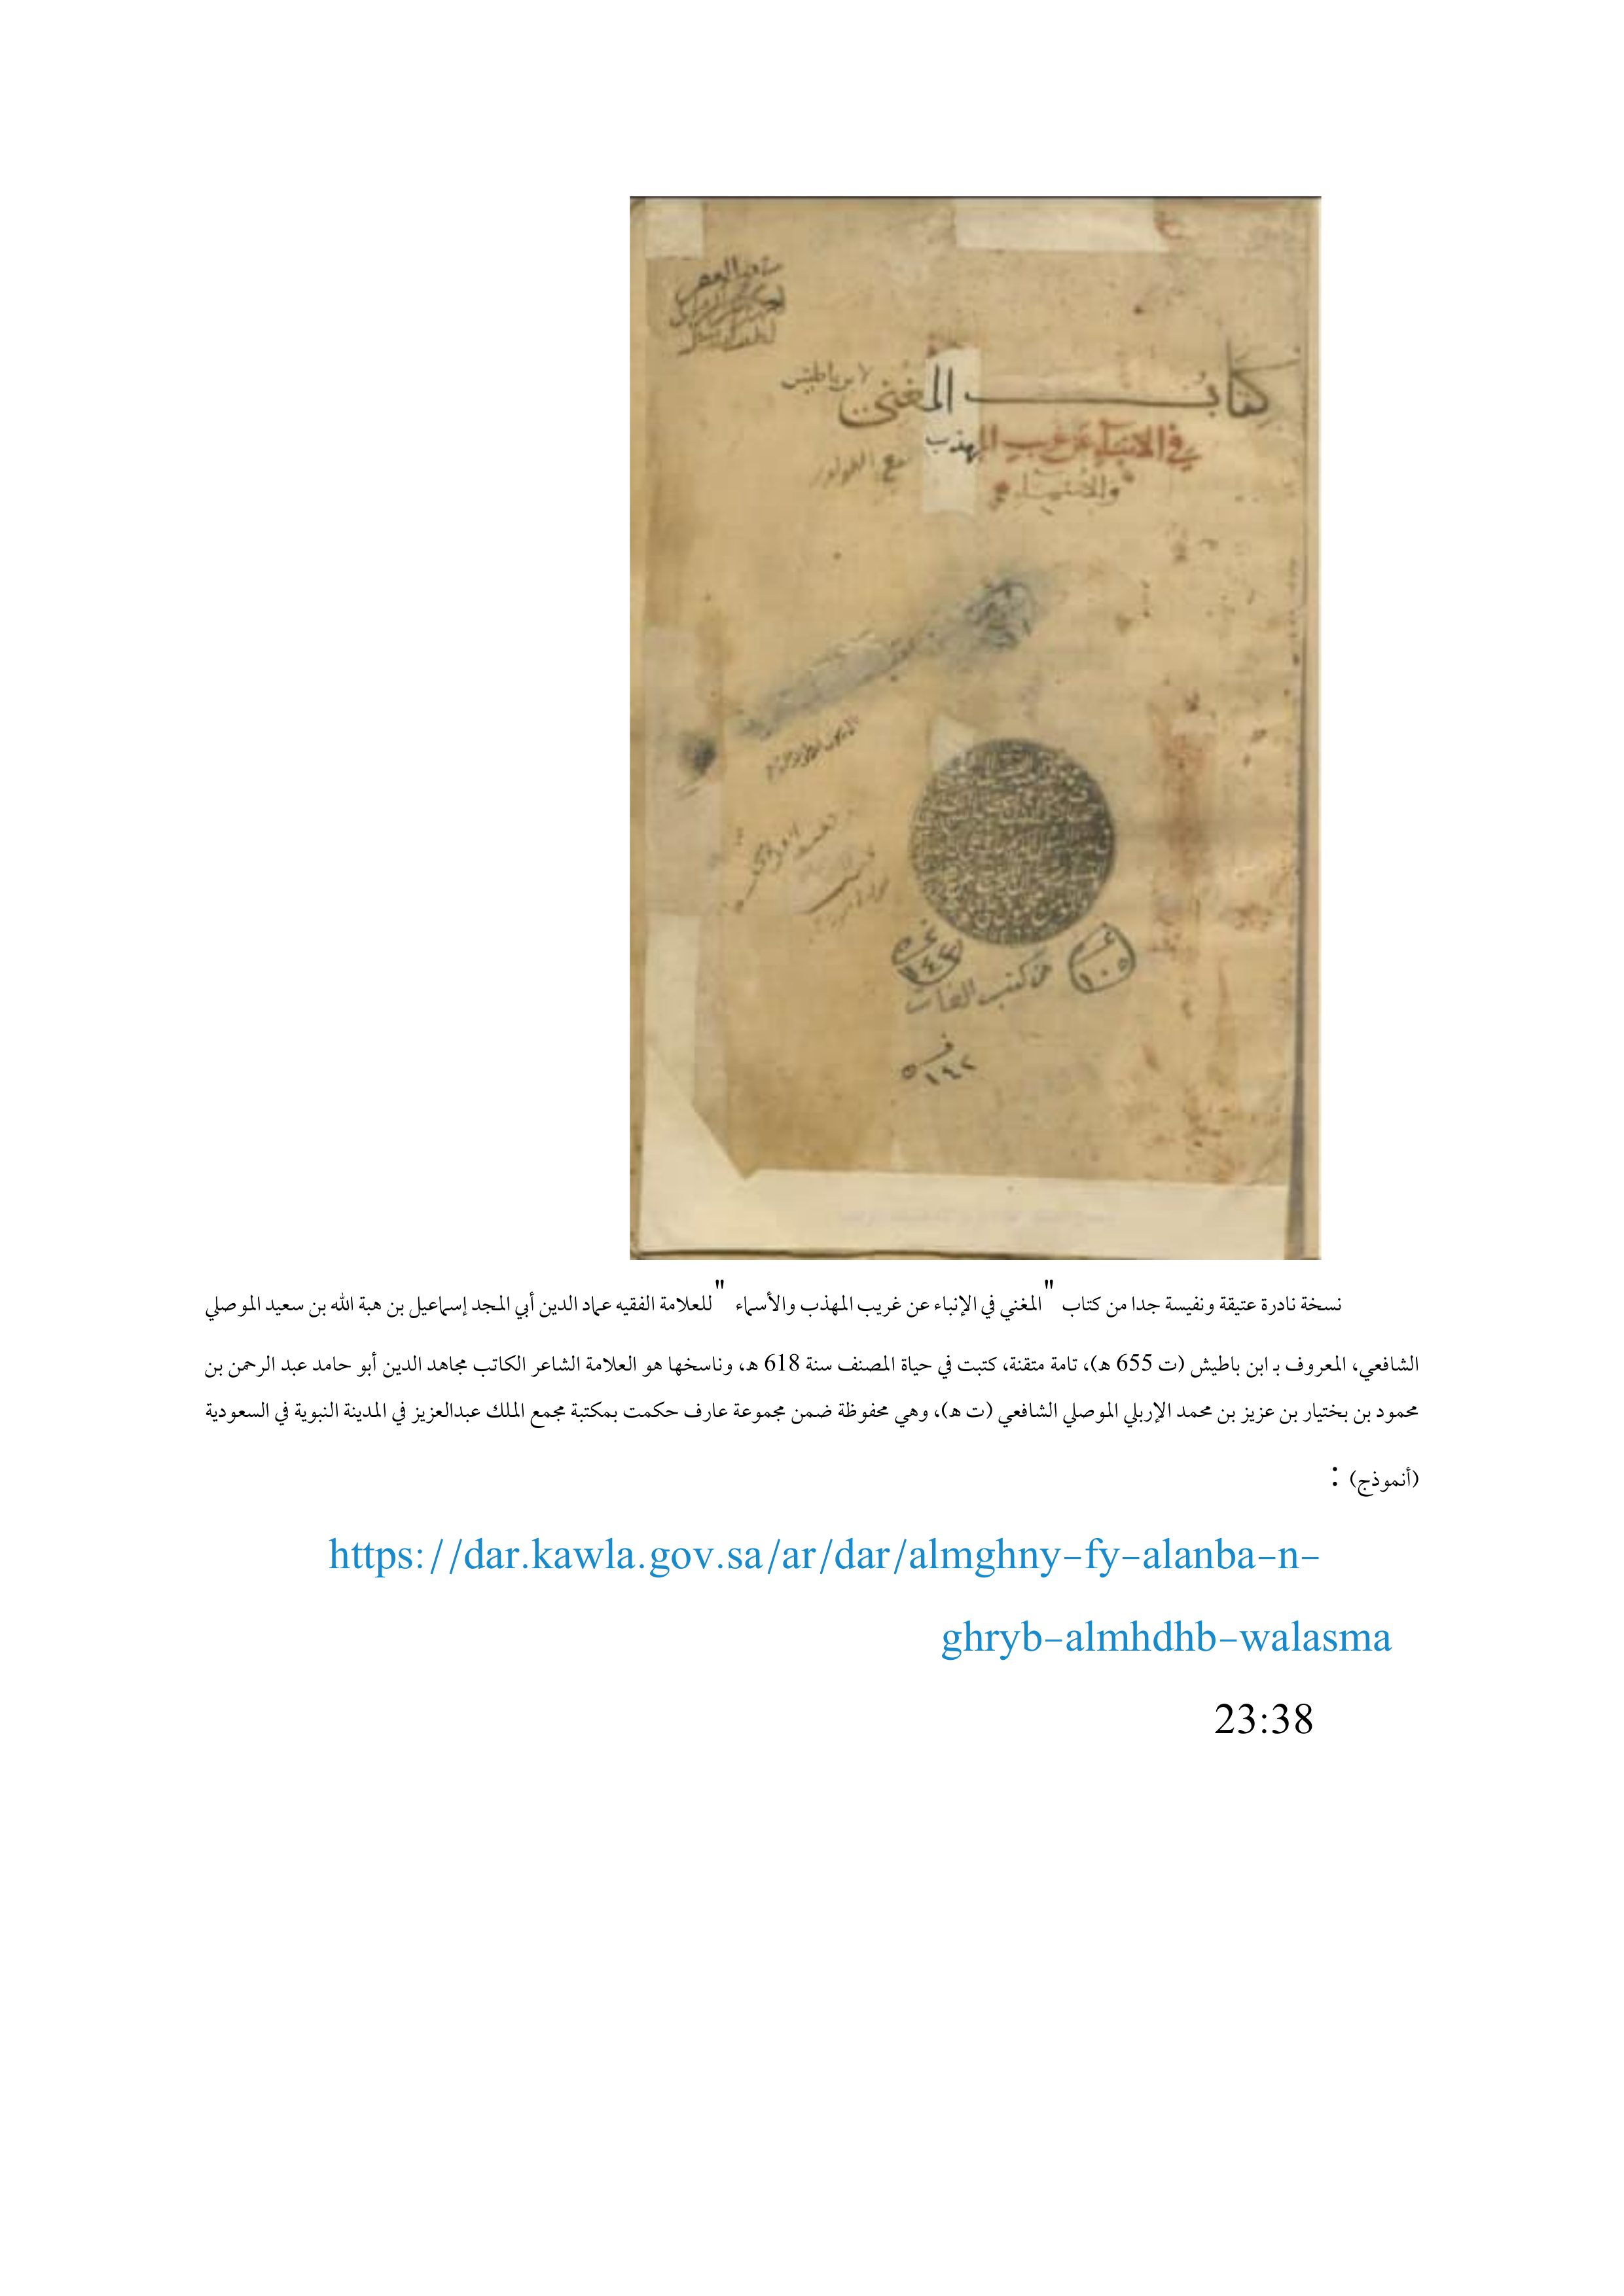 كتاب المغني لابن باطيش
في الانباء عن غريب المهذب
والاسماء
١٠٥
من كتب
نسخة نادرة عتيقة ونفيسة جدا من كتاب "المغني في الإنباء عن غريب المهذب والأسماء" للعلامة الفقيه عماد الدين أبي المجد إسماعيل بن هبة الله بن سعيد الموصلي
الشافعي، المعروف بـ ابن باطيش (ت 655 هـ)، تامة متقنة، كتبت في حياة المصنف سنة 618 هـ، وناسخها هو العلامة الشاعر الكاتب مجاهد الدين أبو حامد عبد الرحمن بن
محمود بن بختيار بن عزيز بن محمد الإربلي الموصلي الشافعي (ت هـ)، وهي محفوظة ضمن مجموعة عارف حكمت بمكتبة مجمع الملك عبدالعزيز في المدينة النبوية في السعودية
(أنموذج) :
https://dar.kawla.gov.sa/ar/dar/almghny-fy-alanba-n-
ghryb-almhdhb-walasma
23:38